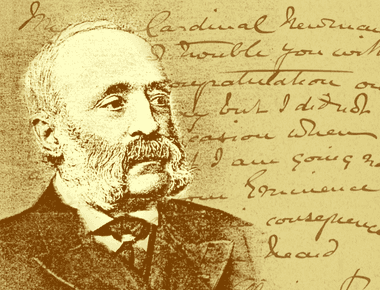 Cardinal Newman
I trouble you with
ongratulation on
but I did not
casion when
I am going
Eminence
consequence
heard